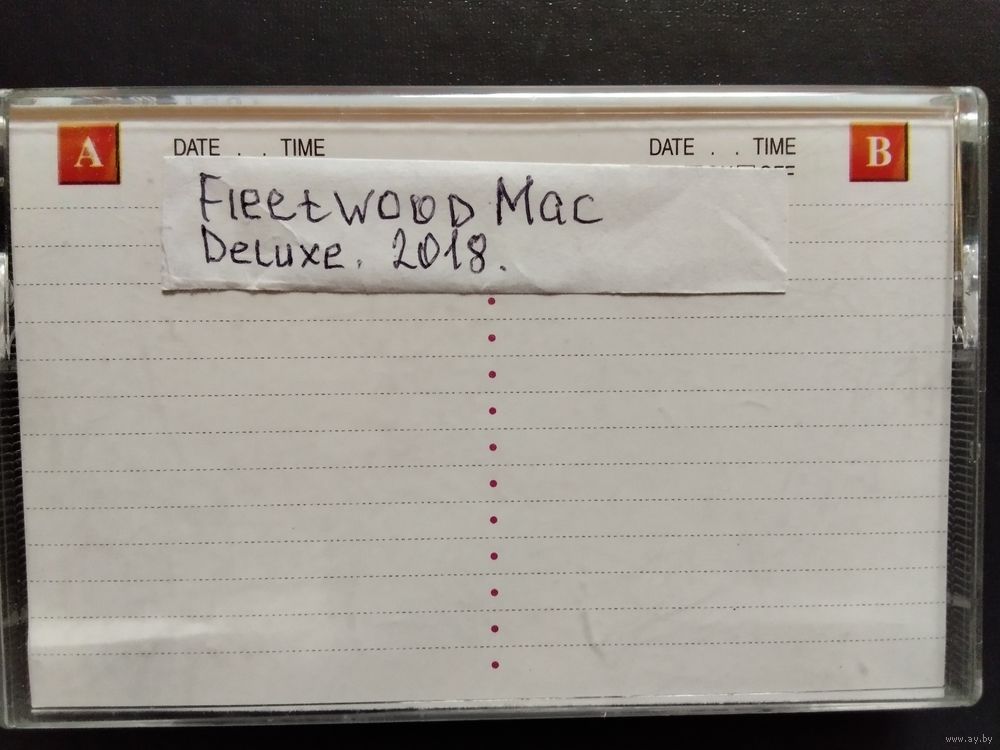 A DATE . . TIME DATE . . TIME B
Fleetwood Mac
Deluxe. 2018.
www.ay.by